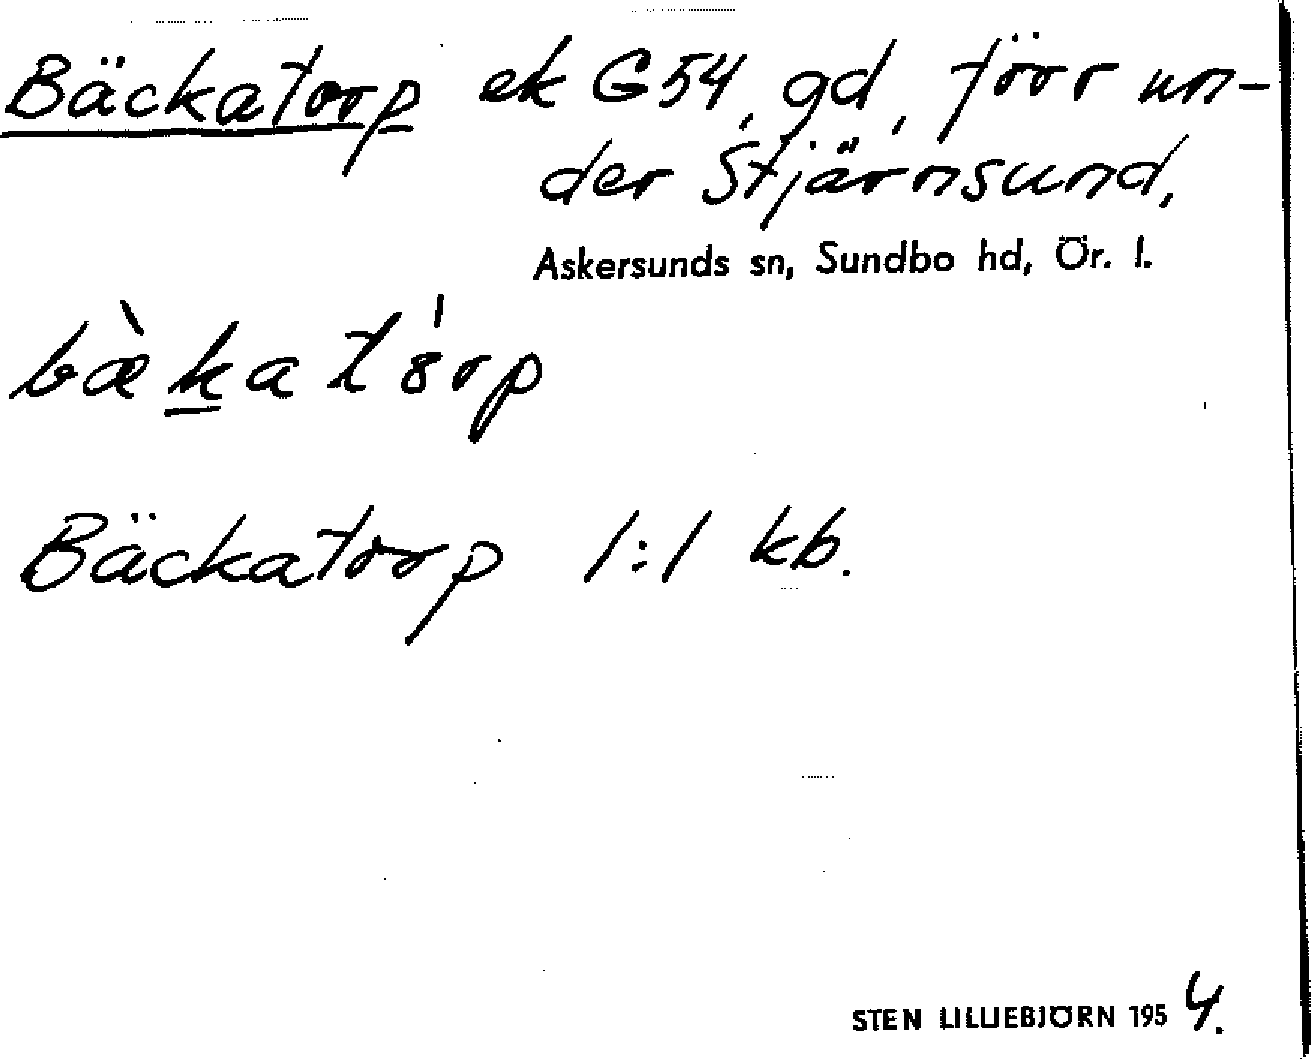 Bäckatorp ek G54, gd, förr un-
der Stjärnsund,
Askersunds sn, Sundbo hd, Ör. l.
bæ̀katór̀p
Bäckatorp 1:1 kb.
STEN LILLIEBJÖRN 1954.